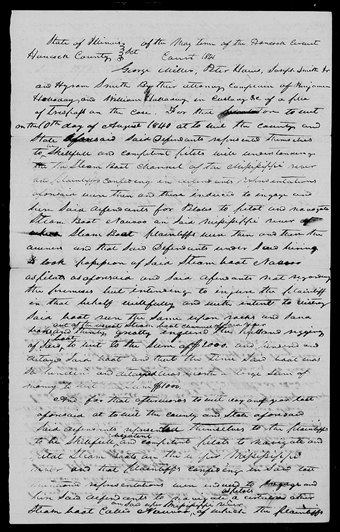 State of Illinois of the May Term of the Hancock Circuit
Hancock County Sct Court 1841
George Miller, Peter Haws, Joseph Smith Jr
and Hyrum Smith By their attorney Complain of Benjamin
Holladay, and William Holladay in custody &c of a plea
of Trespass on the case. For that to wit
on the 10th day of August 1840 at to wit the County and
State aforesaid Said Defendants represented themselves
to Skillfull and competent pilots well
the Steam boat channel of the Mississippi river
and plaintiffs confiding in said representations
aforesaid were then and there induced to engage and
hire Said defendants for Pilots to pilot and navigate
Steam Boat Nauvoo on Said Mississippi river of
which Steam Boat plaintiffs were then and there the
owners and that Said Defendants under Said hiring
to took possession of Said Steam boat Nauvoo
as pilots as aforesaid and Said defendants not regarding
the premises but intending to injure the plaintiffs
in that behalf willfully and with intent to injure
Said boat run the Same upon rocks and Sand
out of the usual Steam boat channel of Said river
and thereby greatly injured the
boat to wit to the Sum of $2000. and
Said boat and that the time Said boat was
detained was worth a large Sum of
money to wit $1000.
And for that afterwards to wit day and year last
aforesaid at to wit the County and State aforesaid
Said defendants represented themselves to the plaintiffs
to be Skillfull and competent pilots to navigate and
pilot Steam boats on the Mississippi
river and that plaintiffs confiding in Said last
representations were induced to engage and
hire Said defendants to navigate a certain other
on said Mississippi river
Steam boat of which the plaintiffs